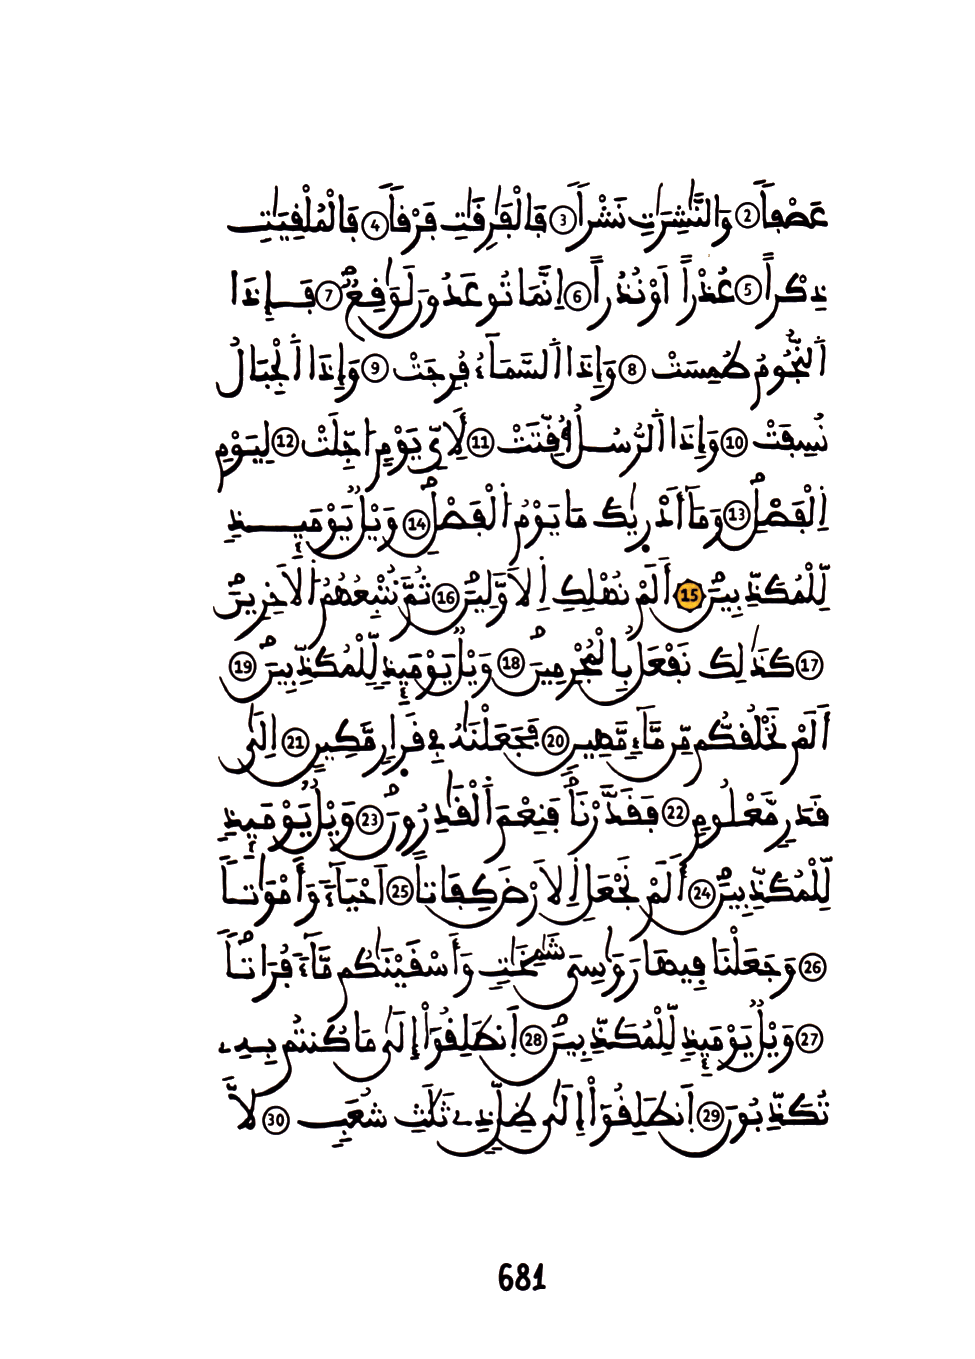 عَصْفاٗ 2 وَالنَّٰشِرَٰتِ نَشْراٗ 3 فَالْفَٰرِقَٰتِ فَرْقاٗ 4 فَالْمُلْقِيَٰتِ
ذِكْراً 5 عُذْراً اَوْ نُذُراً 6 اِنَّمَا تُوعَدُونَ لَوَٰقِعٞ 7 فَإِذَا
اَ۬لنُّجُومُ طُمِسَتْ 8 وَإِذَا اَ۬لسَّمَآءُ فُرِجَتْ 9 وَإِذَا اَ۬لْجِبَالُ
نُسِفَتْ 10 وَإِذَا اَ۬لرُّسُلُ أُقِّتَتْ 11 لَأِيِّ يَوْمٍ ا۟جِّلَتْ 12 لِيَوْمِ
اِ۬لْفَصْلِۖ 13 وَمَآ أَدْر۪ىٰكَ مَا يَوْمُ اُ۬لْفَصْلِۖ 14 وَيْلٞ يَوْمَئِذٖ
لِّلْمُكَذِّبِينَۖ 15 أَلَمْ نُهْلِكِ اِ۬لَاوَّلِينَۖ 16 ثُمَّ نُتْبِعُهُمُ اُ۬لَاخِرِينَۖ
17 كَذَٰلِكَ نَفْعَلُ بِالْمُجْرِمِينَۖ 18 وَيْلٞ يَوْمَئِذٖ لِّلْمُكَذِّبِينَۖ 19
أَلَمْ نَخْلُقكُّم مِّن مَّآءٖ مَّهِينٖ 20 فَجَعَلْنَٰهُ فِے قَر۪ارٖ مَّكِينٍ 21 اِلَىٰ
قَدَرٖ مَّعْلُومٖ 22 فَقَدَّرْنَاۖ فَنِعْمَ اَ۬لْقَٰدِرُونَۖ 23 وَيْلٞ يَوْمَئِذٖ
لِّلْمُكَذِّبِينَۖ 24 أَلَمْ نَجْعَلِ اِ۬لَارْضَ كِفَاتاً 25 اَحْيَآءٗ وَأَمْوَٰتاٗ
26 وَجَعَلْنَا فِيهَا رَوَٰسِىَ شَٰمِخَٰتٖ وَأَسْقَيْنَٰكُم مَّآءٗ فُرَاتاٗۖ
27 وَيْلٞ يَوْمَئِذٖ لِّلْمُكَذِّبِينَۖ 28 اَ۪نطَلِقُوٓاْ إِلَىٰ مَا كُنتُم بِهِۦ
تُكَذِّبُونَ 29 اَ۪نطَلِقُوٓاْ إِلَىٰ ظِلّٖ ذِے ثَلَٰثِ شُعَبٖ 30 لَّا
681